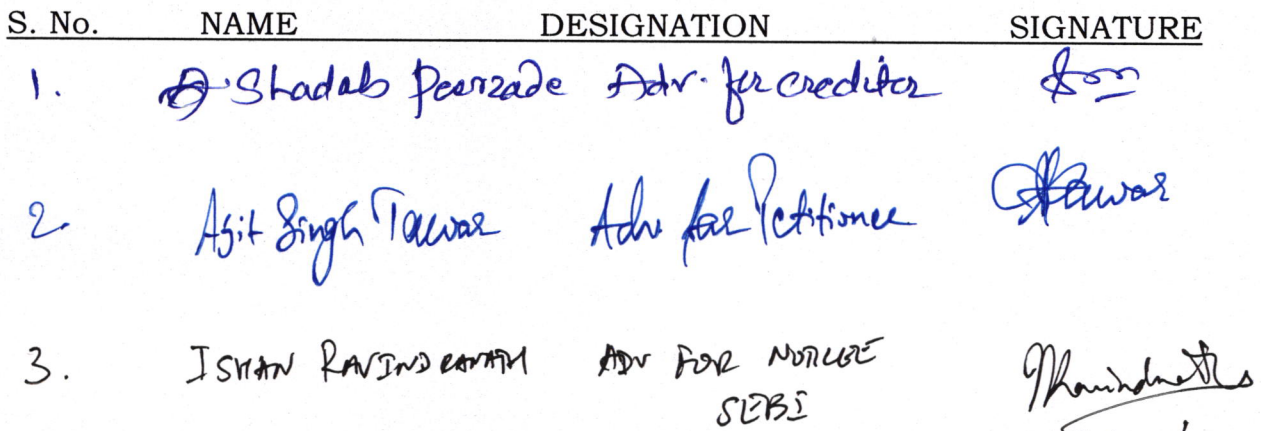 S. No. NAME DESIGNATION SIGNATURE
1. Shadab Peerzade Adv. for creditor
2. Ajit Singh Tawar Adv for Petitioner
3. ISHAN RAVINDRANATH ADV FOR NOTICEE
SEBI